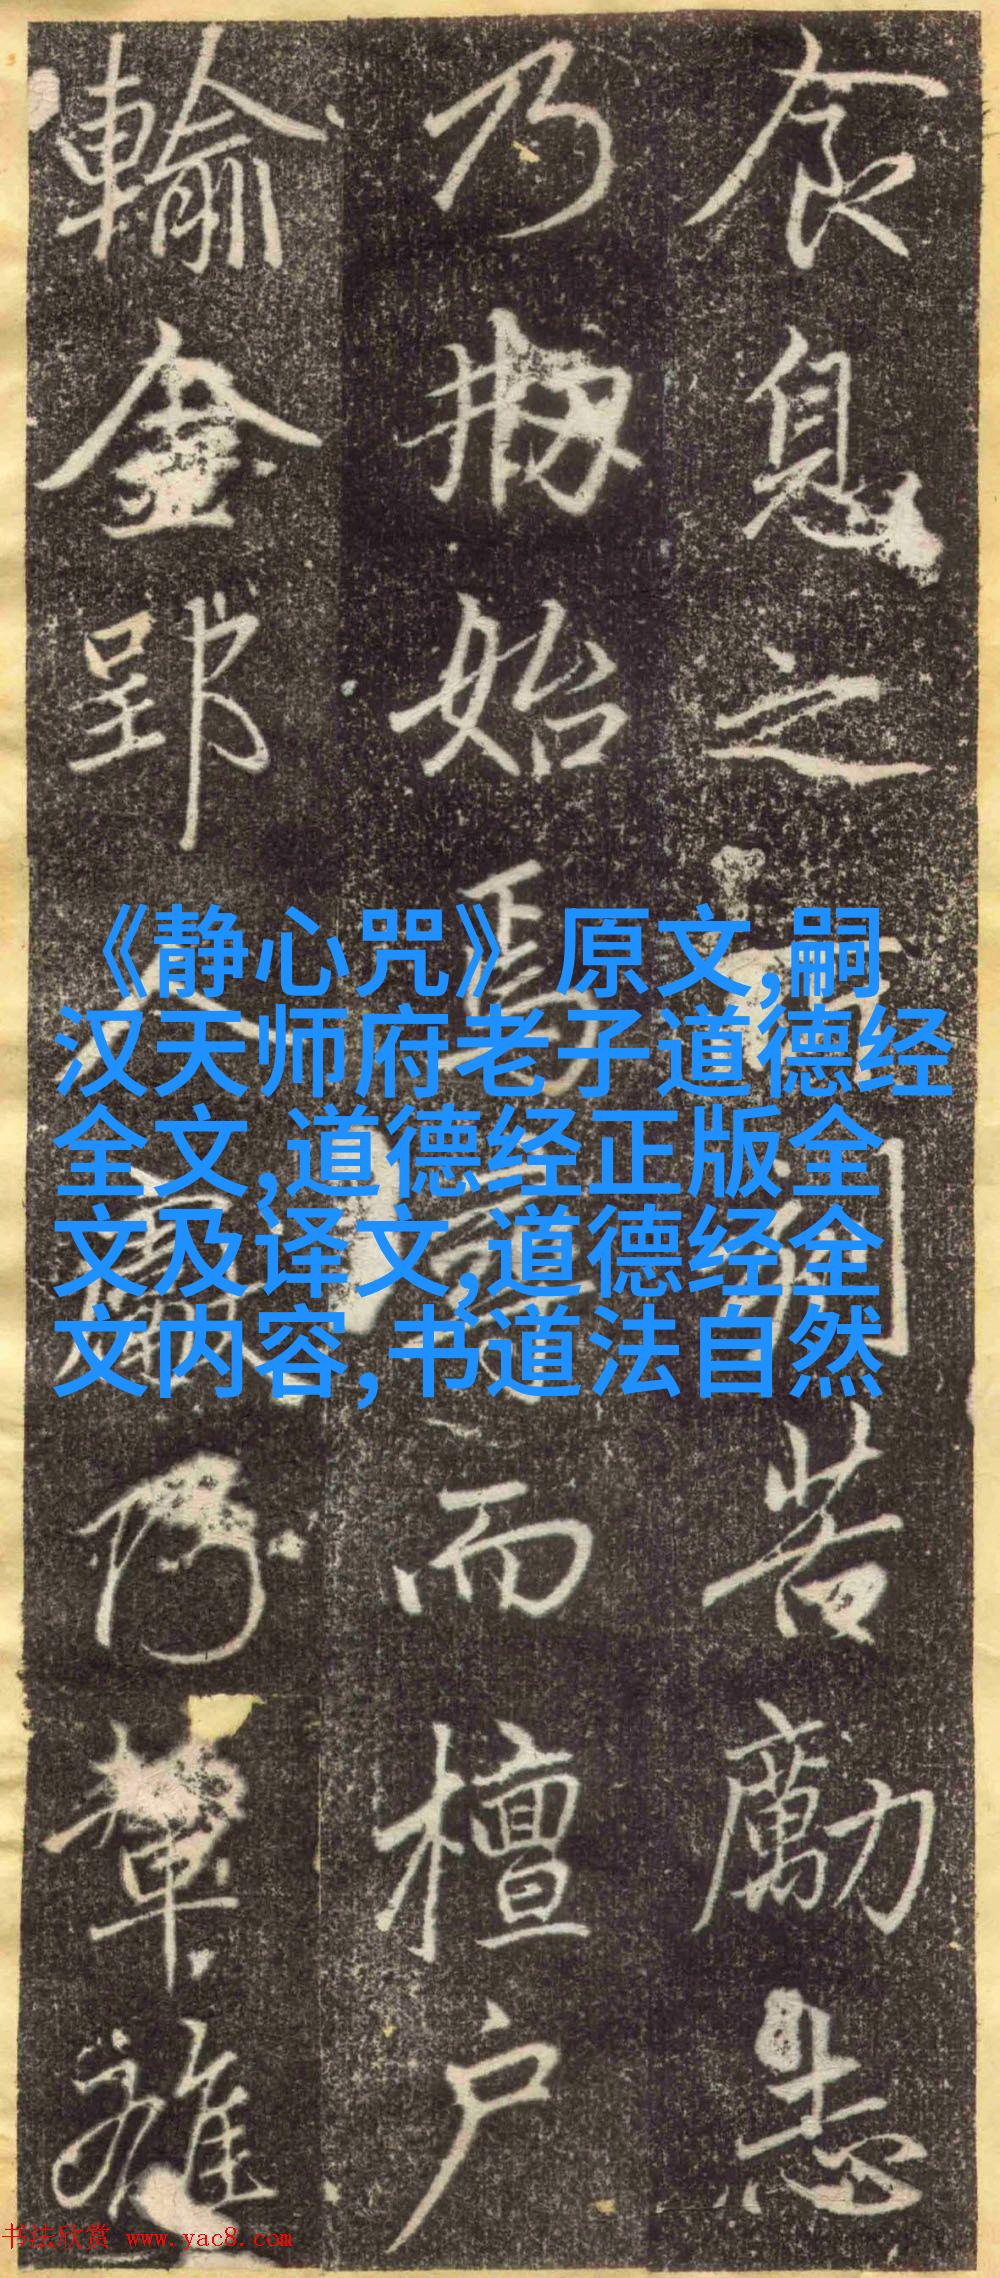 食息之間苦勵志
乃始焉而檀户
輸金郢人輩雖
《静心咒》原文,嗣
汉天师府老子道德经
全文,道德经正版全
文及译文,道德经全
文内容,书道法自然
书法欣赏 www.yac8.com